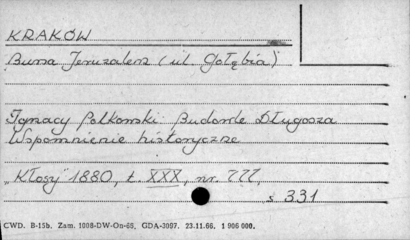 KRAKÓW
Bursa Jeruzalem (ul. Gołębia)
Ignacy Polkowski: Budowle Długosza
Wspomnienie historyczne
„Kłosy" 1880, t. XXX, nr. 777,
s 331
CWD. B-15b. Zam. 1098-DW-On-66, GDA-3097. 23.11.66. 1 906 000.